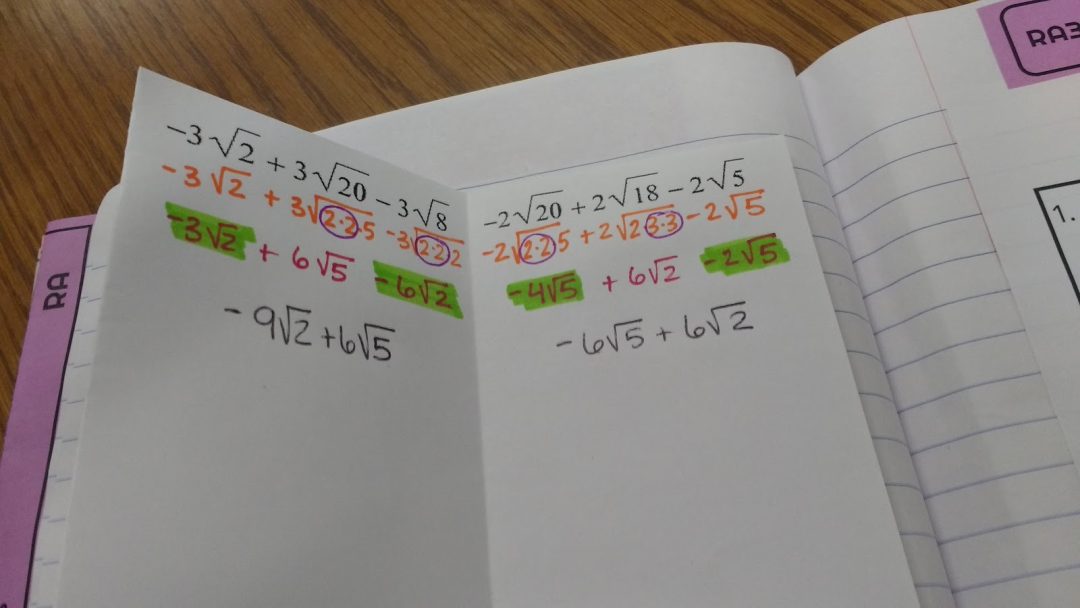 -3√2 + 3√20 - 3√8
-3√2 + 3√2·2·5 -3√2·2·2
-3√2 + 6√5 -6√2
-9√2+6√5
-2√20 + 2√18 - 2√5
-2√2·2·5 +2√2·3·3 -2√5
-4√5 + 6√2 -2√5
-6√5 + 6√2
RA
1.